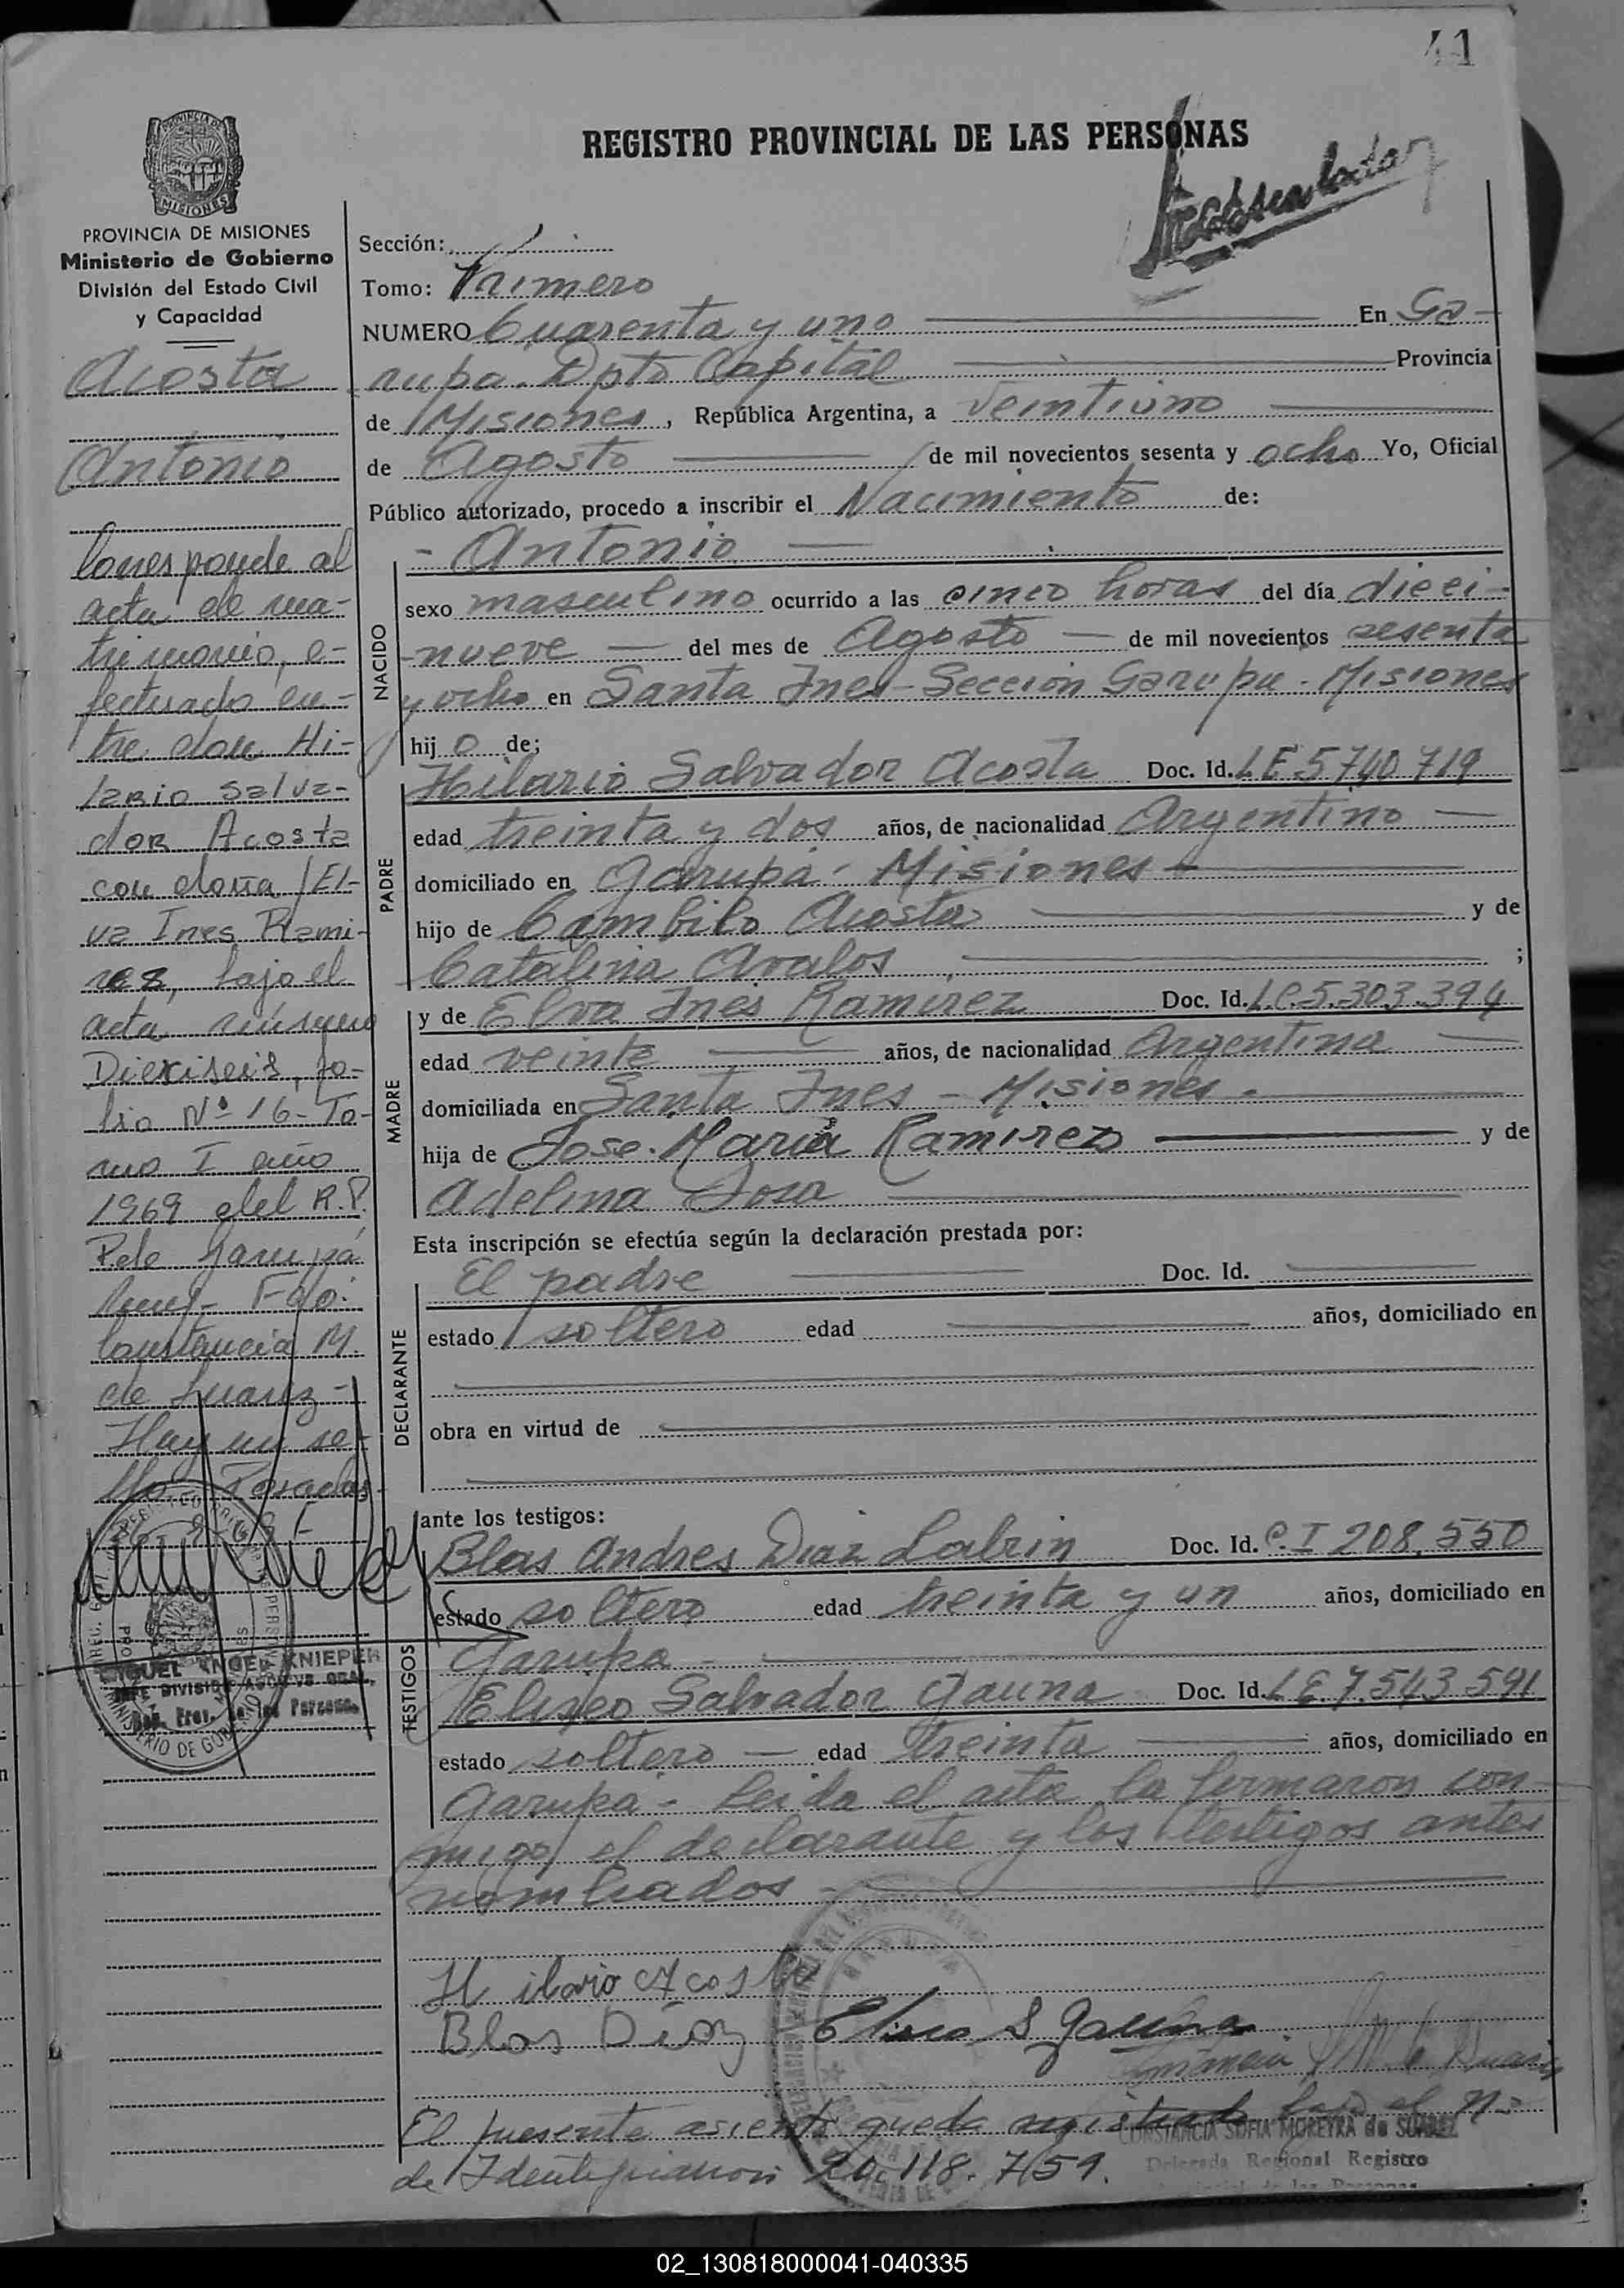 41
REGISTRO PROVINCIAL DE LAS PERSONAS
MISIONES
PROVINCIA DE MISIONES
Ministerio de Gobierno
División del Estado Civil
y Capacidad
Acosta
Antonio
Corresponde al
acta de ma-
trimonio, e-
fectuado en-
tre don Hi-
lario Salva-
dor Acosta
con doña El-
va Ines Rami-
rez, bajo el
acta número
Dieciseis, fo-
lio Nº 16-To-
mo I año
1969 del R.P.
P. de Garupá
Fdo:
Constancia M.
de Suarez-
Hay un se-
llo. Posadas
MIGUEL ANGEL KNIEPER
Sección:
Tomo: Primero
NUMERO Cuarenta y uno En Ga-
rupa. Dpto Capital Provincia
de Misiones, República Argentina, a Veintiuno
de Agosto de mil novecientos sesenta y ocho Yo, Oficial
Público autorizado, procedo a inscribir el Nacimiento de:
- Antonio
NACIDO
sexo masculino ocurrido a las cinco horas del día dieci-
nueve del mes de Agosto de mil novecientos sesenta
y ocho en Santa Ines-Seccion Garupa-Misiones
hijo de;
PADRE
Hilario Salvador Acosta Doc. Id. L E 5740 719
edad treinta y dos años, de nacionalidad Argentino
domiciliado en Garupá- Misiones
hijo de Acosta y de
Catalina Avalos ;
MADRE
y de Elva Ines Ramirez Doc. Id. L.C.5.303.394
edad veinte años, de nacionalidad Argentina
domiciliada en Santa Ines - Misiones.
hija de Jose Maria Ramirez y de
Adelina Sosa
Esta inscripción se efectúa según la declaración prestada por:
DECLARANTE
El padre Doc. Id.
estado soltero edad años, domiciliado en
obra en virtud de
ante los testigos:
TESTIGOS
Blas Andres Diaz Labrin Doc. Id. C.I 208.550
estado soltero edad treinta y un años, domiciliado en
Garupa
Eliseo Salvador Gauna Doc. Id. L E 7.543 591
estado soltero edad treinta años, domiciliado en
Garupá- Leida el acta la firmaron con
migo el declarante y los testigos antes
nombrados
Hilario Acosta
Blas Diaz Eliseo S Gauna
El presente asiento queda registrado bajo el nº
CONSTANCIA SOFIA MOREYRA de SUAREZ
de Identificacion 20.118.759.
Delegada Regional Registro
02_130818000041-040335